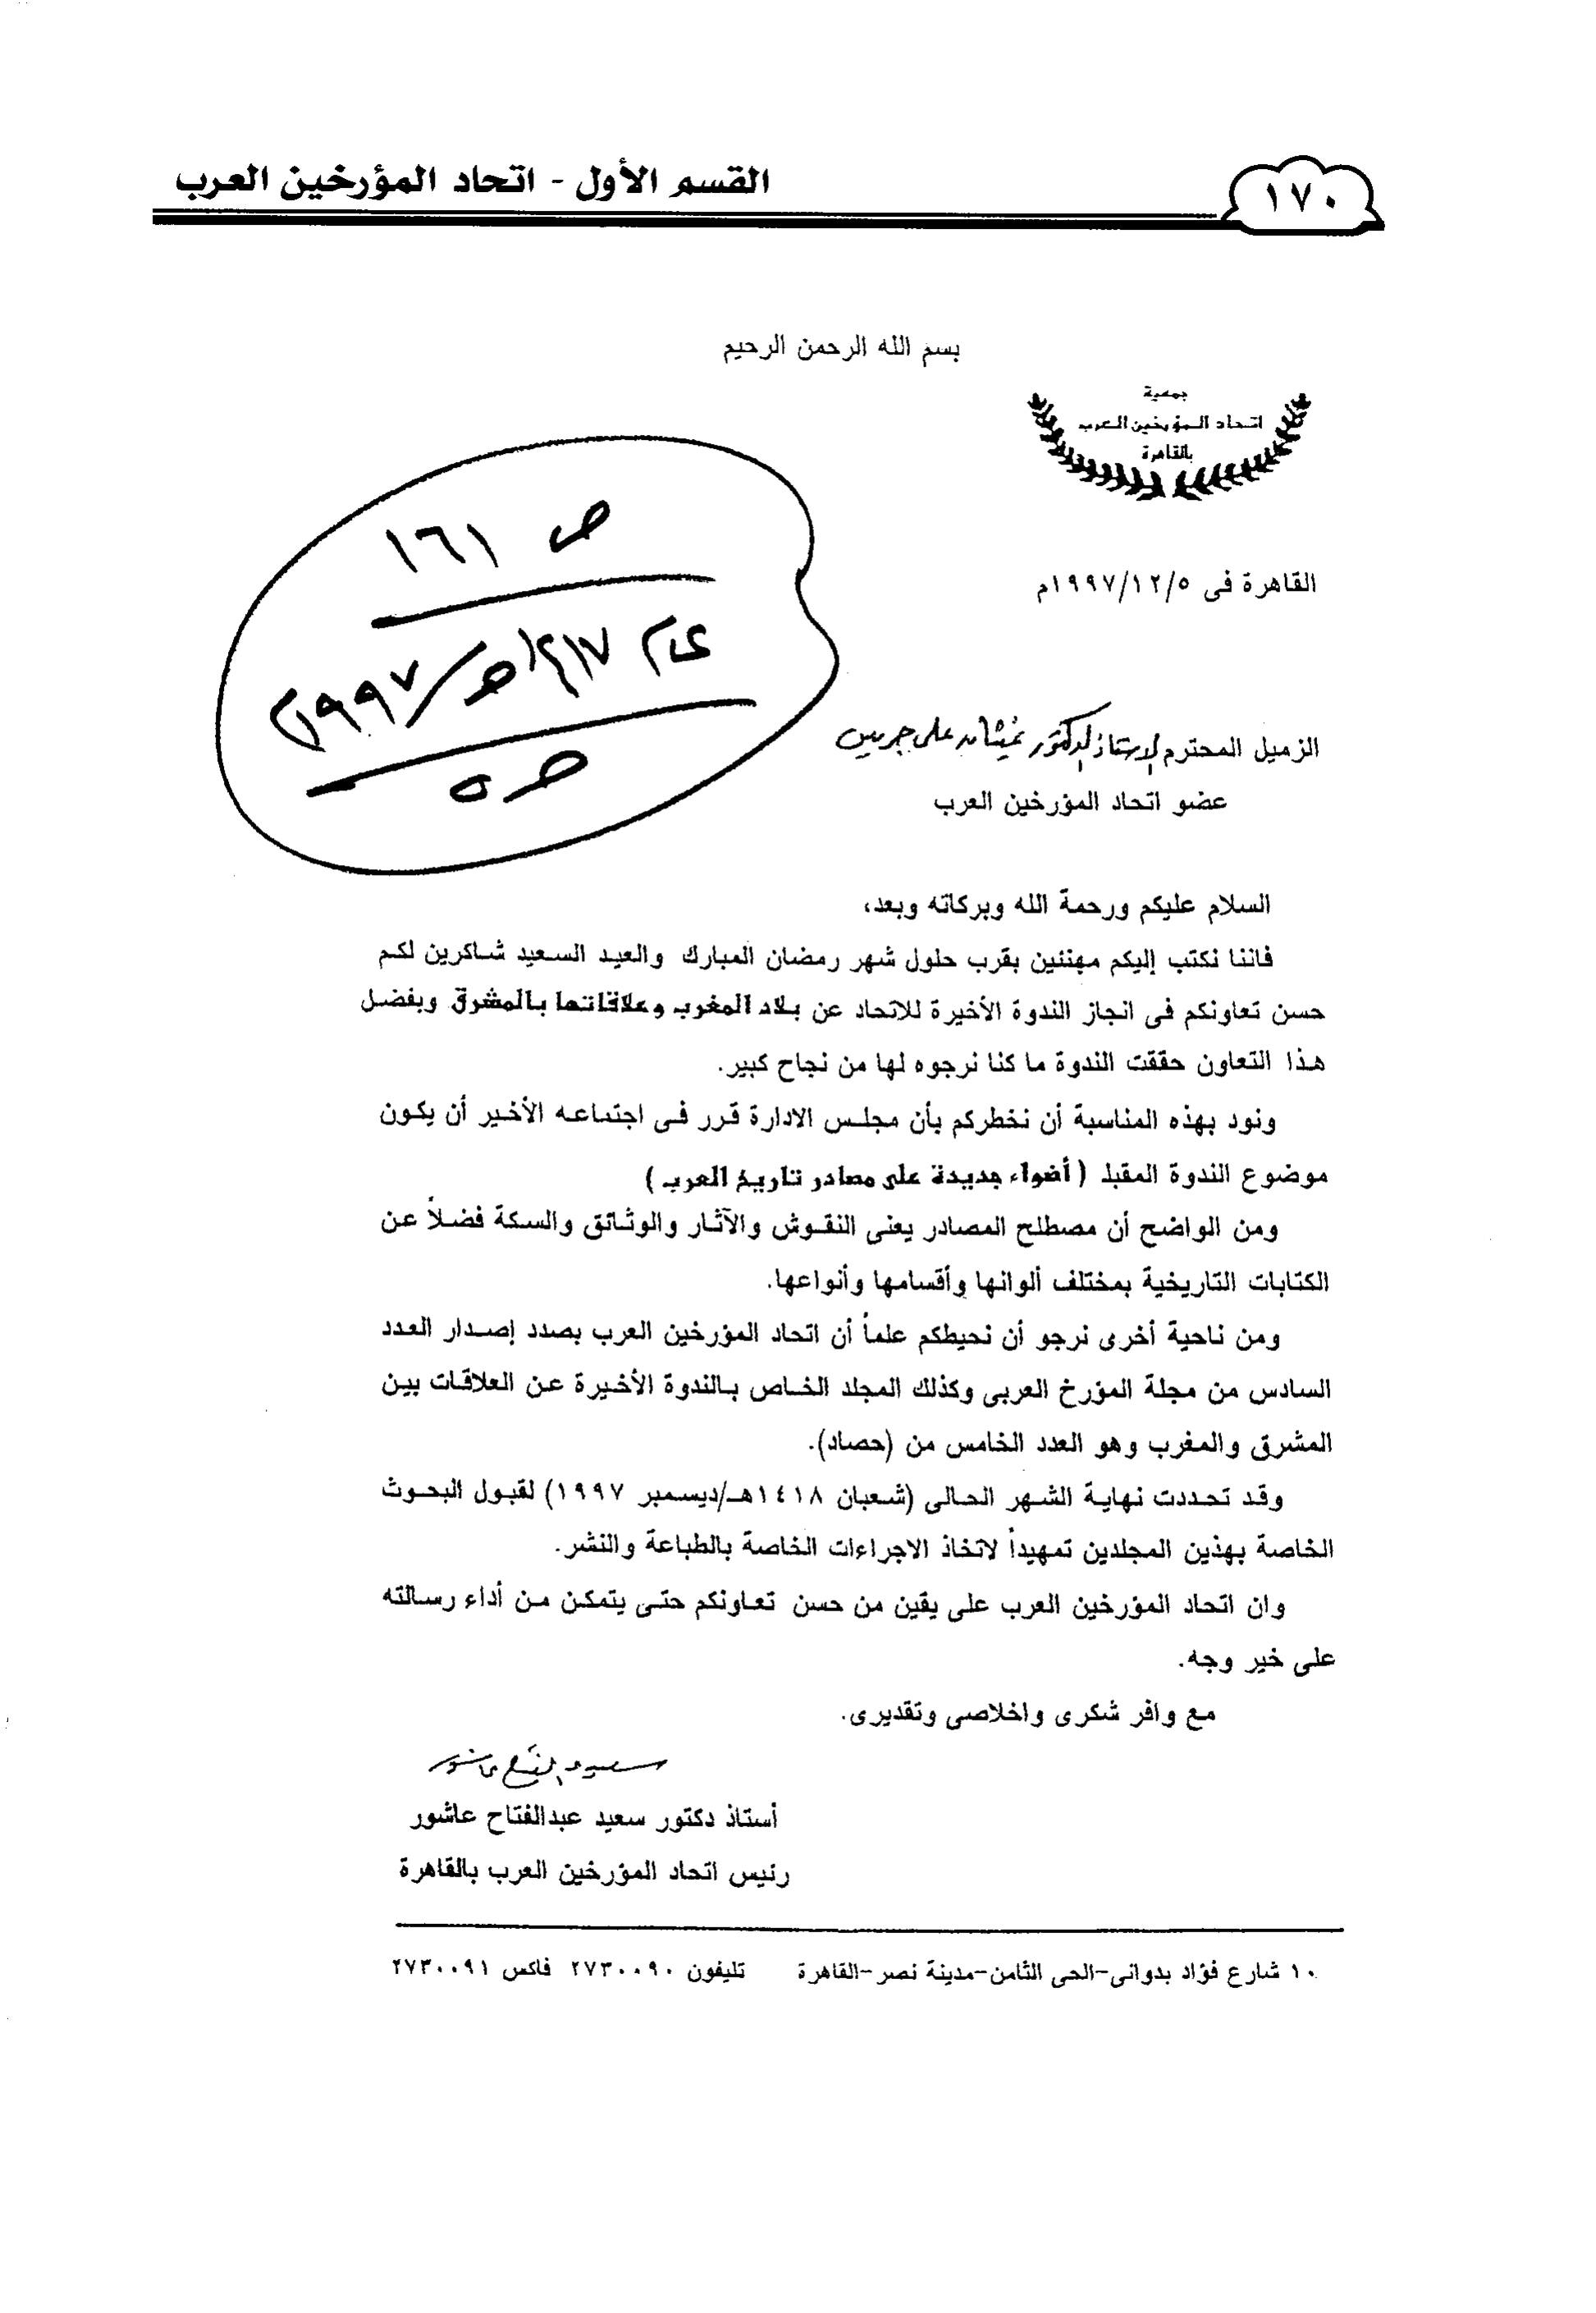 القسم الأول - اتحاد المؤرخين العرب
١٧٠
بسم الله الرحمن الرحيم
جمعية
اتحاد المؤرخين العرب
بالقاهرة
ص ١٦١
عام ١٤١٧هـ/١٩٩٧م
القاهرة فى ١٩٩٧/١٢/٥م
الزميل المحترم الاستاذ الدكتور غيثان على جريس
عضو اتحاد المؤرخين العرب
السلام عليكم ورحمة الله وبركاته وبعد،
فاننا نكتب إليكم مهنئين بقرب حلول شهر رمضان المبارك والعيد السعيد شاكرين لكم
حسن تعاونكم فى انجاز الندوة الأخيرة للاتحاد عن بلاد المغرب وعلاقاتها بالمشرق وبفضل
هذا التعاون حققت الندوة ما كنا نرجوه لها من نجاح كبير.
ونود بهذه المناسبة أن نخطركم بأن مجلس الادارة قرر فى اجتماعه الأخير أن يكون
موضوع الندوة المقبلة (أضواء جديدة على مصادر تاريخ العرب)
ومن الواضح أن مصطلح المصادر يعنى النقوش والآثار والوثائق والسكة فضلاً عن
الكتابات التاريخية بمختلف ألوانها وأقسامها وأنواعها.
ومن ناحية أخرى نرجو أن نحيطكم علماً أن اتحاد المؤرخين العرب بصدد إصدار العدد
السادس من مجلة المؤرخ العربى وكذلك المجلد الخاص بالندوة الأخيرة عن العلاقات بين
المشرق والمغرب وهو العدد الخامس من (حصاد).
وقد تحددت نهاية الشهر الحالى (شعبان ١٤١٨هـ/ديسمبر ١٩٩٧) لقبول البحوث
الخاصة بهذين المجلدين تمهيداً لاتخاذ الاجراءات الخاصة بالطباعة والنشر.
وان اتحاد المؤرخين العرب على يقين من حسن تعاونكم حتى يتمكن من أداء رسالته
على خير وجه.
مع وافر شكرى واخلاصى وتقديرى.
أستاذ دكتور سعيد عبدالفتاح عاشور
رئيس اتحاد المؤرخين العرب بالقاهرة
١٠ شارع فؤاد بدوانى-الحى الثامن-مدينة نصر-القاهرة تليفون ٢٧٣٠٠٩٠ فاكس ٢٧٣٠٠٩١